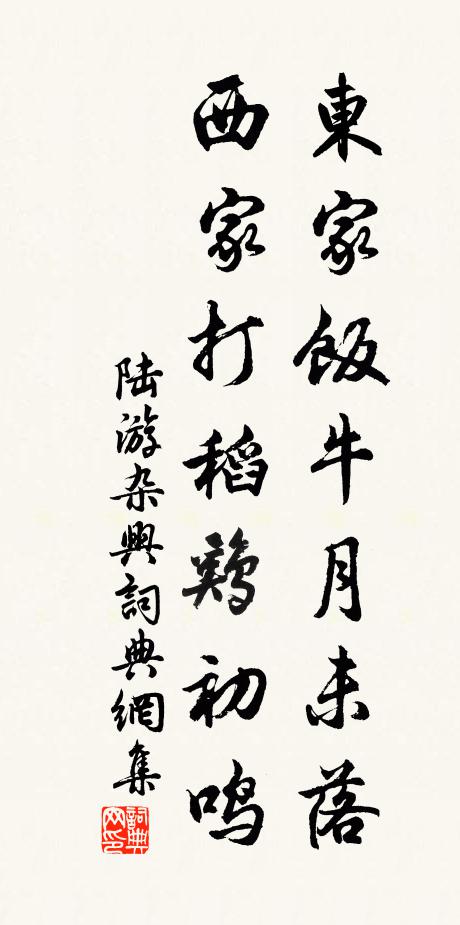 東家飯牛月未落
西家打稻鷄初鸣
陆游杂興詞典網集
詞典网印